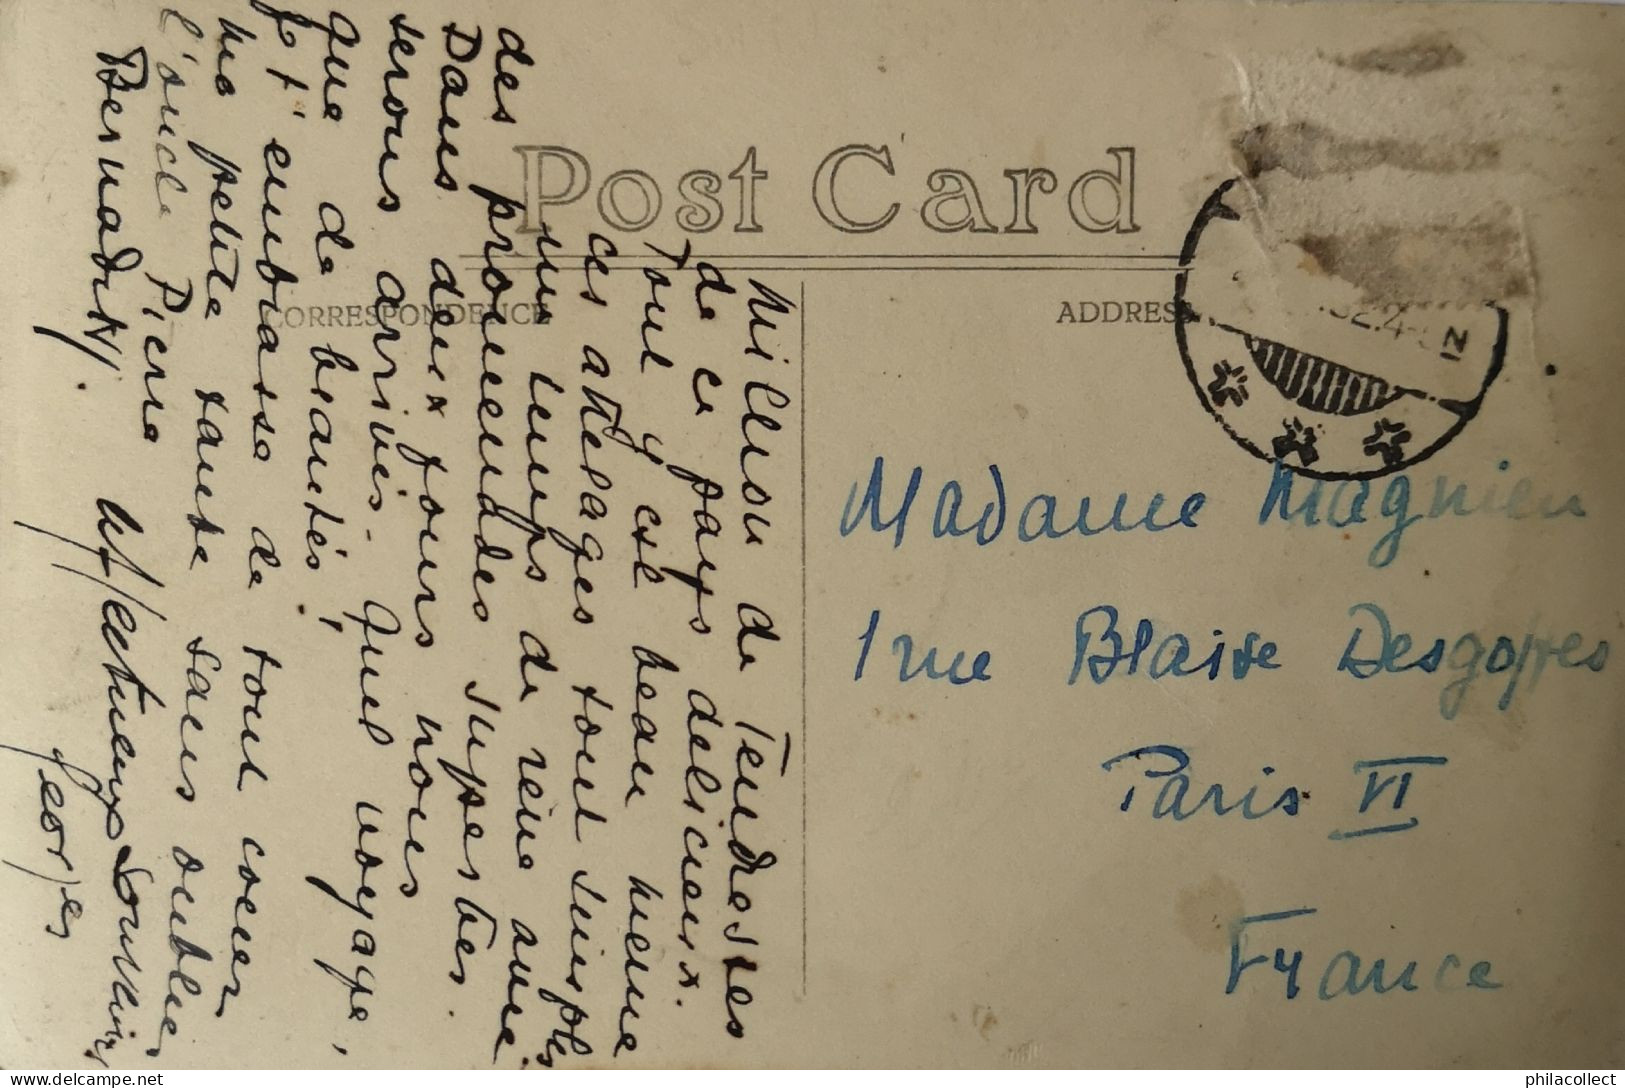 Post Card
CORRESPONDENCE
ADDRESS
Million de Tendresses
de ce pays delicieux.
Tout y est beau meme
ces attelages tout simples
un temps de rêve avec
des promenades superbes.
Dans deux jours nous
serons arrivés. Quel voyage,
que de beautés!
Je t'embrasse de tout coeur
ma petite tante sans oublier
l'oncle Pierre
Affectueux
Georges
Madame Magnien
1 rue Blaise Desgoffes
Paris VI
France
philacollect@philacollect.com